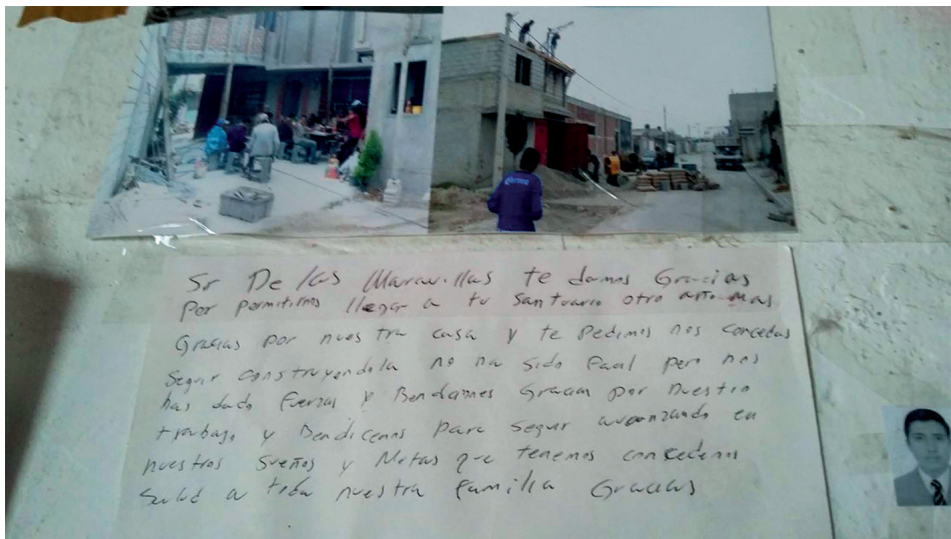 Sr De las Maravillas te damos Gracias
Por permitirnos llegar a tu santuario otro año mas
Gracias por nuestra casa y te pedimos nos concedas
Seguir construyendola no ha sido facil pero nos
has dado fuerzas y Bendiciones Gracias por nuestro
trabajo y Bendicenos para seguir avanzando en
nuestros sueños y Metas que tenemos concedenos
Salud a toda nuestra familia Gracias